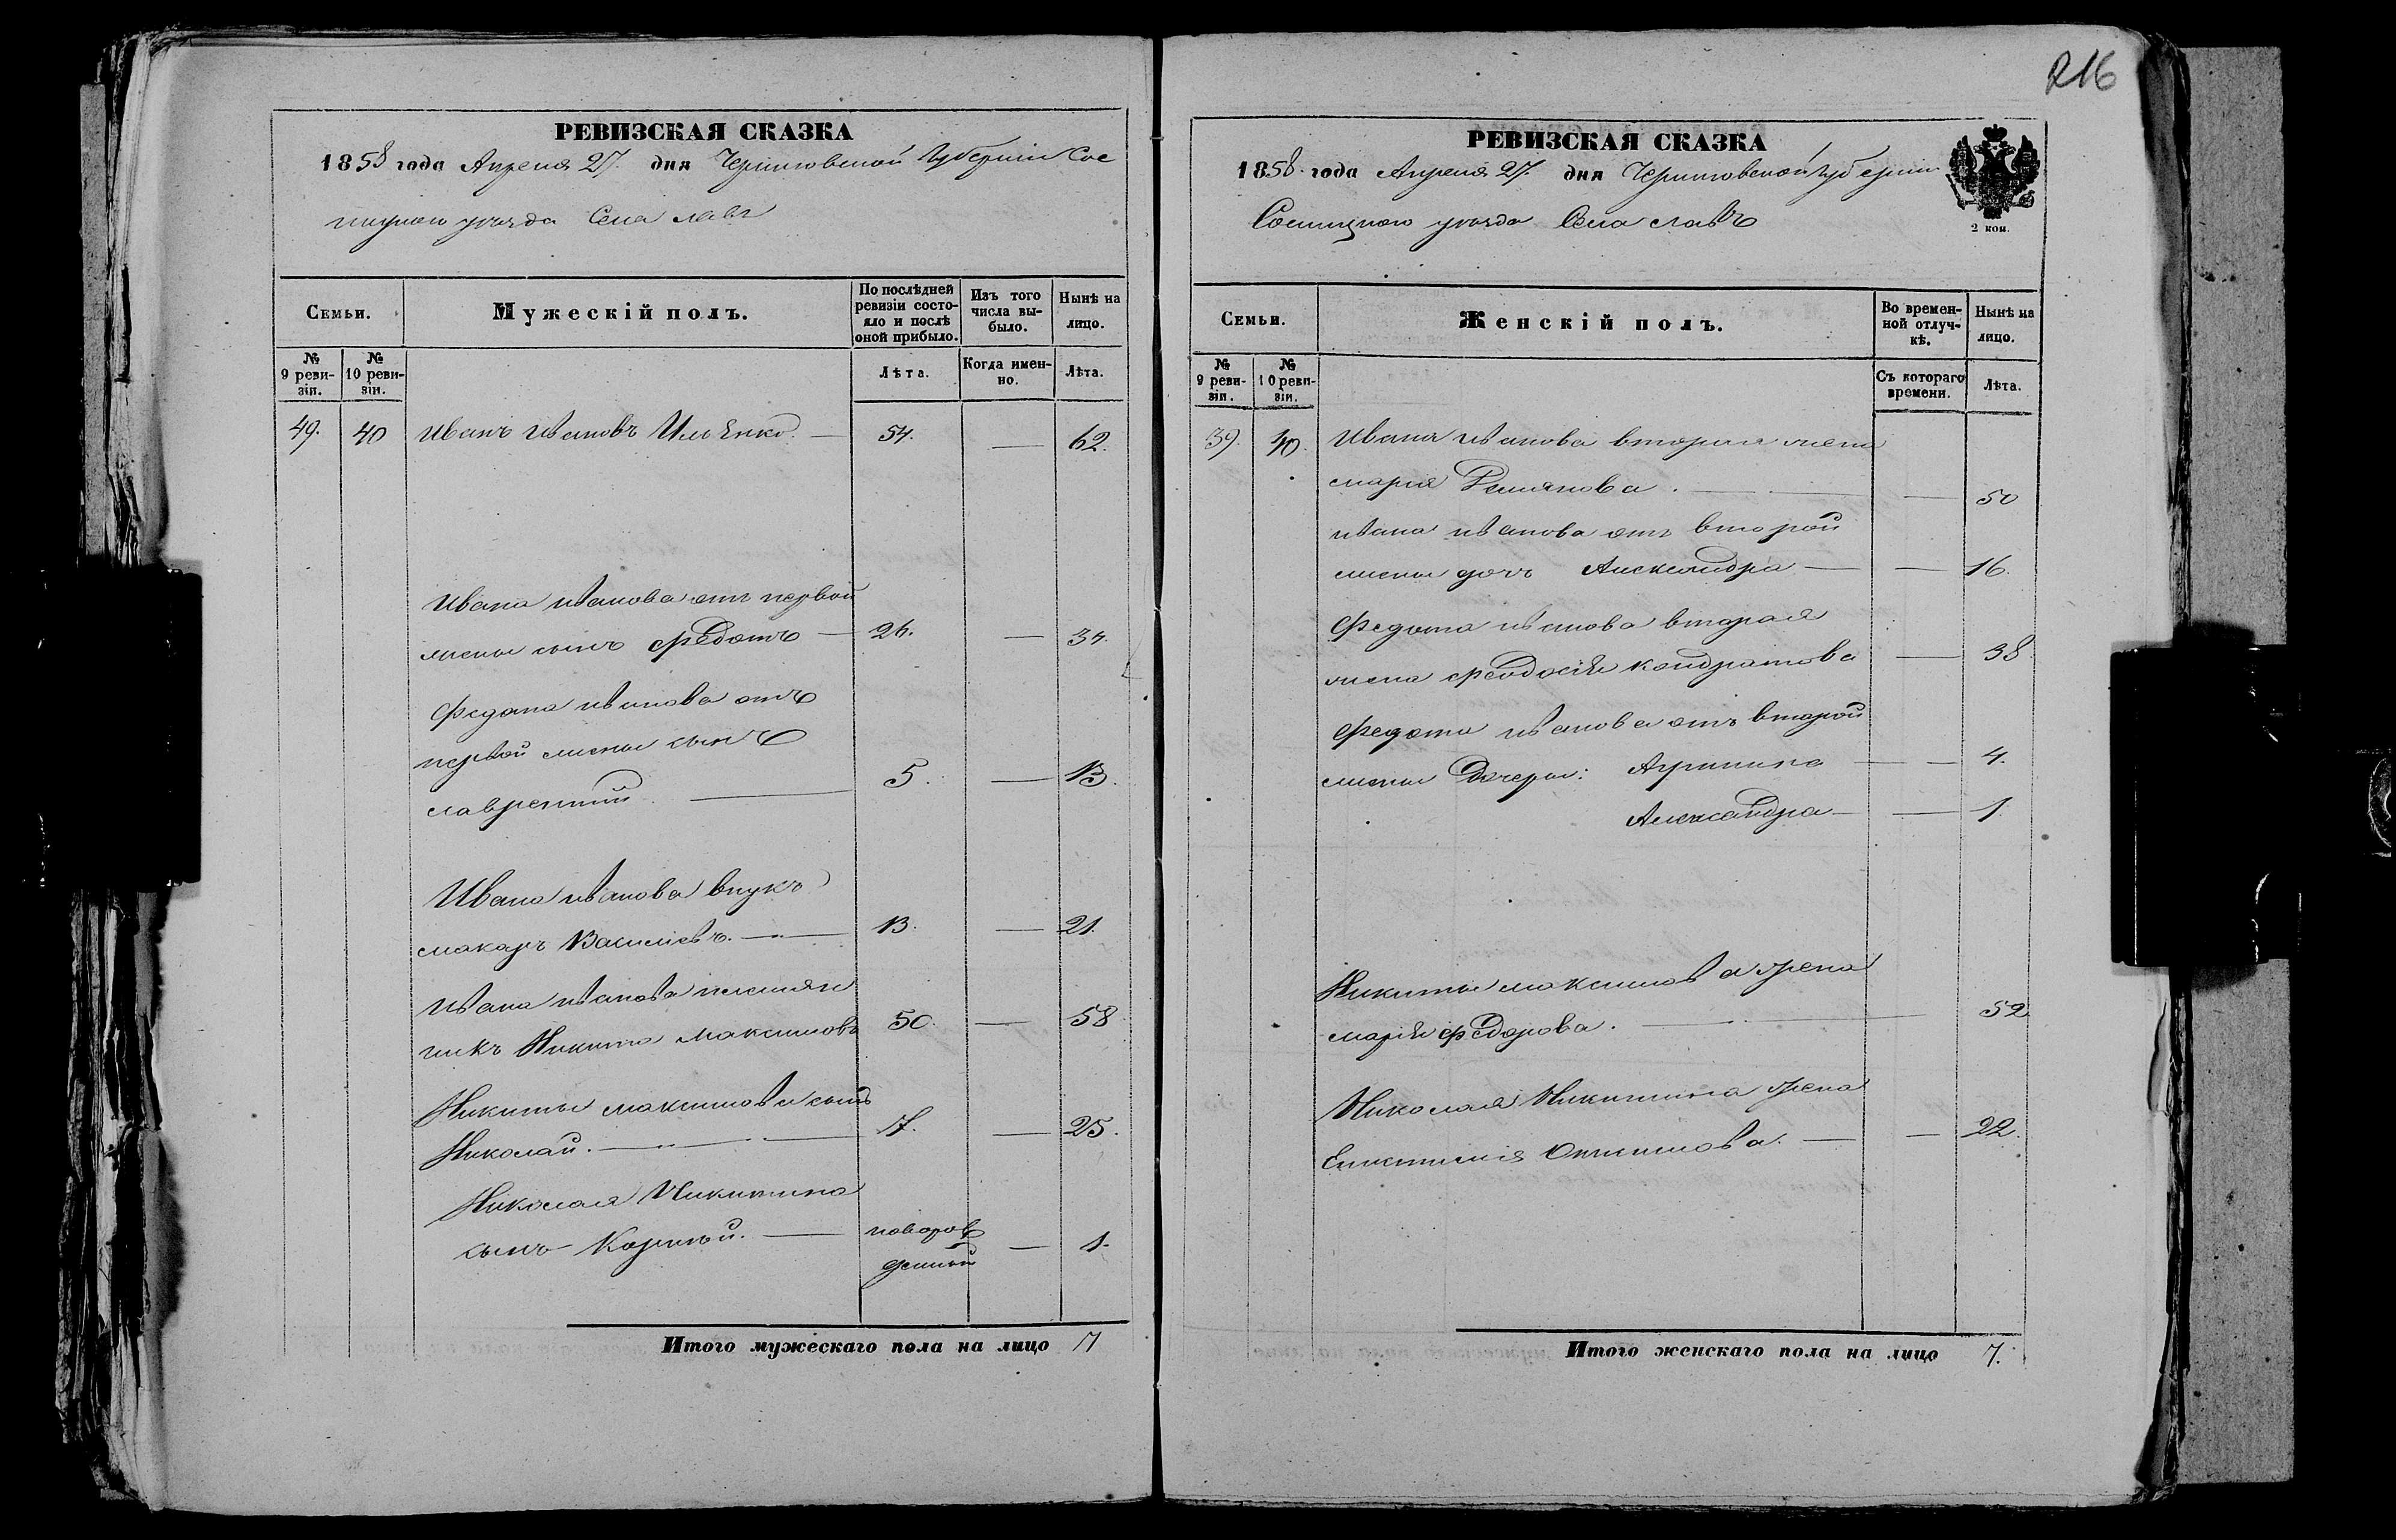 216
РЕВИЗСКАЯ СКАЗКА
1858 года Апреля 27. дня Черниговской Губернии Сос
ницкого уезда Села лавъ
Семьи.
Мужескій полъ.
По послѣдней ревизіи состояло и послѣ оной прибыло.
Изъ того числа выбыло.
Нынѣ на лицо.
№ 9 ревизіи.
№ 10 ревизіи.
Лѣта.
Когда именно.
Лѣта.
49. 40 Иванъ Ивановъ Ильенко. — 54. — 62.
Ивана иванова отъ первой
жены сынъ Федотъ — 26. — 34.
Федота иванова отъ
первой жены сынъ
лаврентий — 5. — 13.
Ивана иванова внукъ
макаръ Василиевъ. — 13. — 21.
Ивана иванова племян
никъ Никита максимовъ 50. — 58
Никиты максимова сынъ
Николай. — 17. — 25.
Николая Никитина
сынъ — — новорож
денный — 1.
Итого мужескаго пола на лицо 7
РЕВИЗСКАЯ СКАЗКА
1858. года Апреля 27. дня Черниговской Губернии
Сосницкого уезда Села лавъ
2 коп.
Семьи.
Женскій полъ.
Во временной отлучкѣ.
Нынѣ на лицо.
№ 9 ревизіи.
№ 10 ревизіи.
Съ котораго времени.
Лѣта.
39. 40. Ивана иванова вторая жена
мария — — 50
ивана иванова отъ второй
жены дочь Александра — — 16.
Федота иванова вторая
жена феодосия кондратова — 38
Федота иванова отъ второй
жены Дочери: Агрипина — — 4.
Александра — — 1.
Никиты максимова жена
мария федорова. — 52
Николая Никитина жена
— — 22.
Итого женскаго пола на лицо 7.